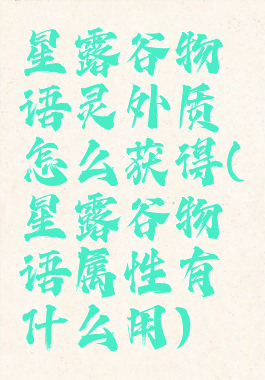 星露谷物
语灵外质
怎么获得(
星露谷物
语属性有
什么用)